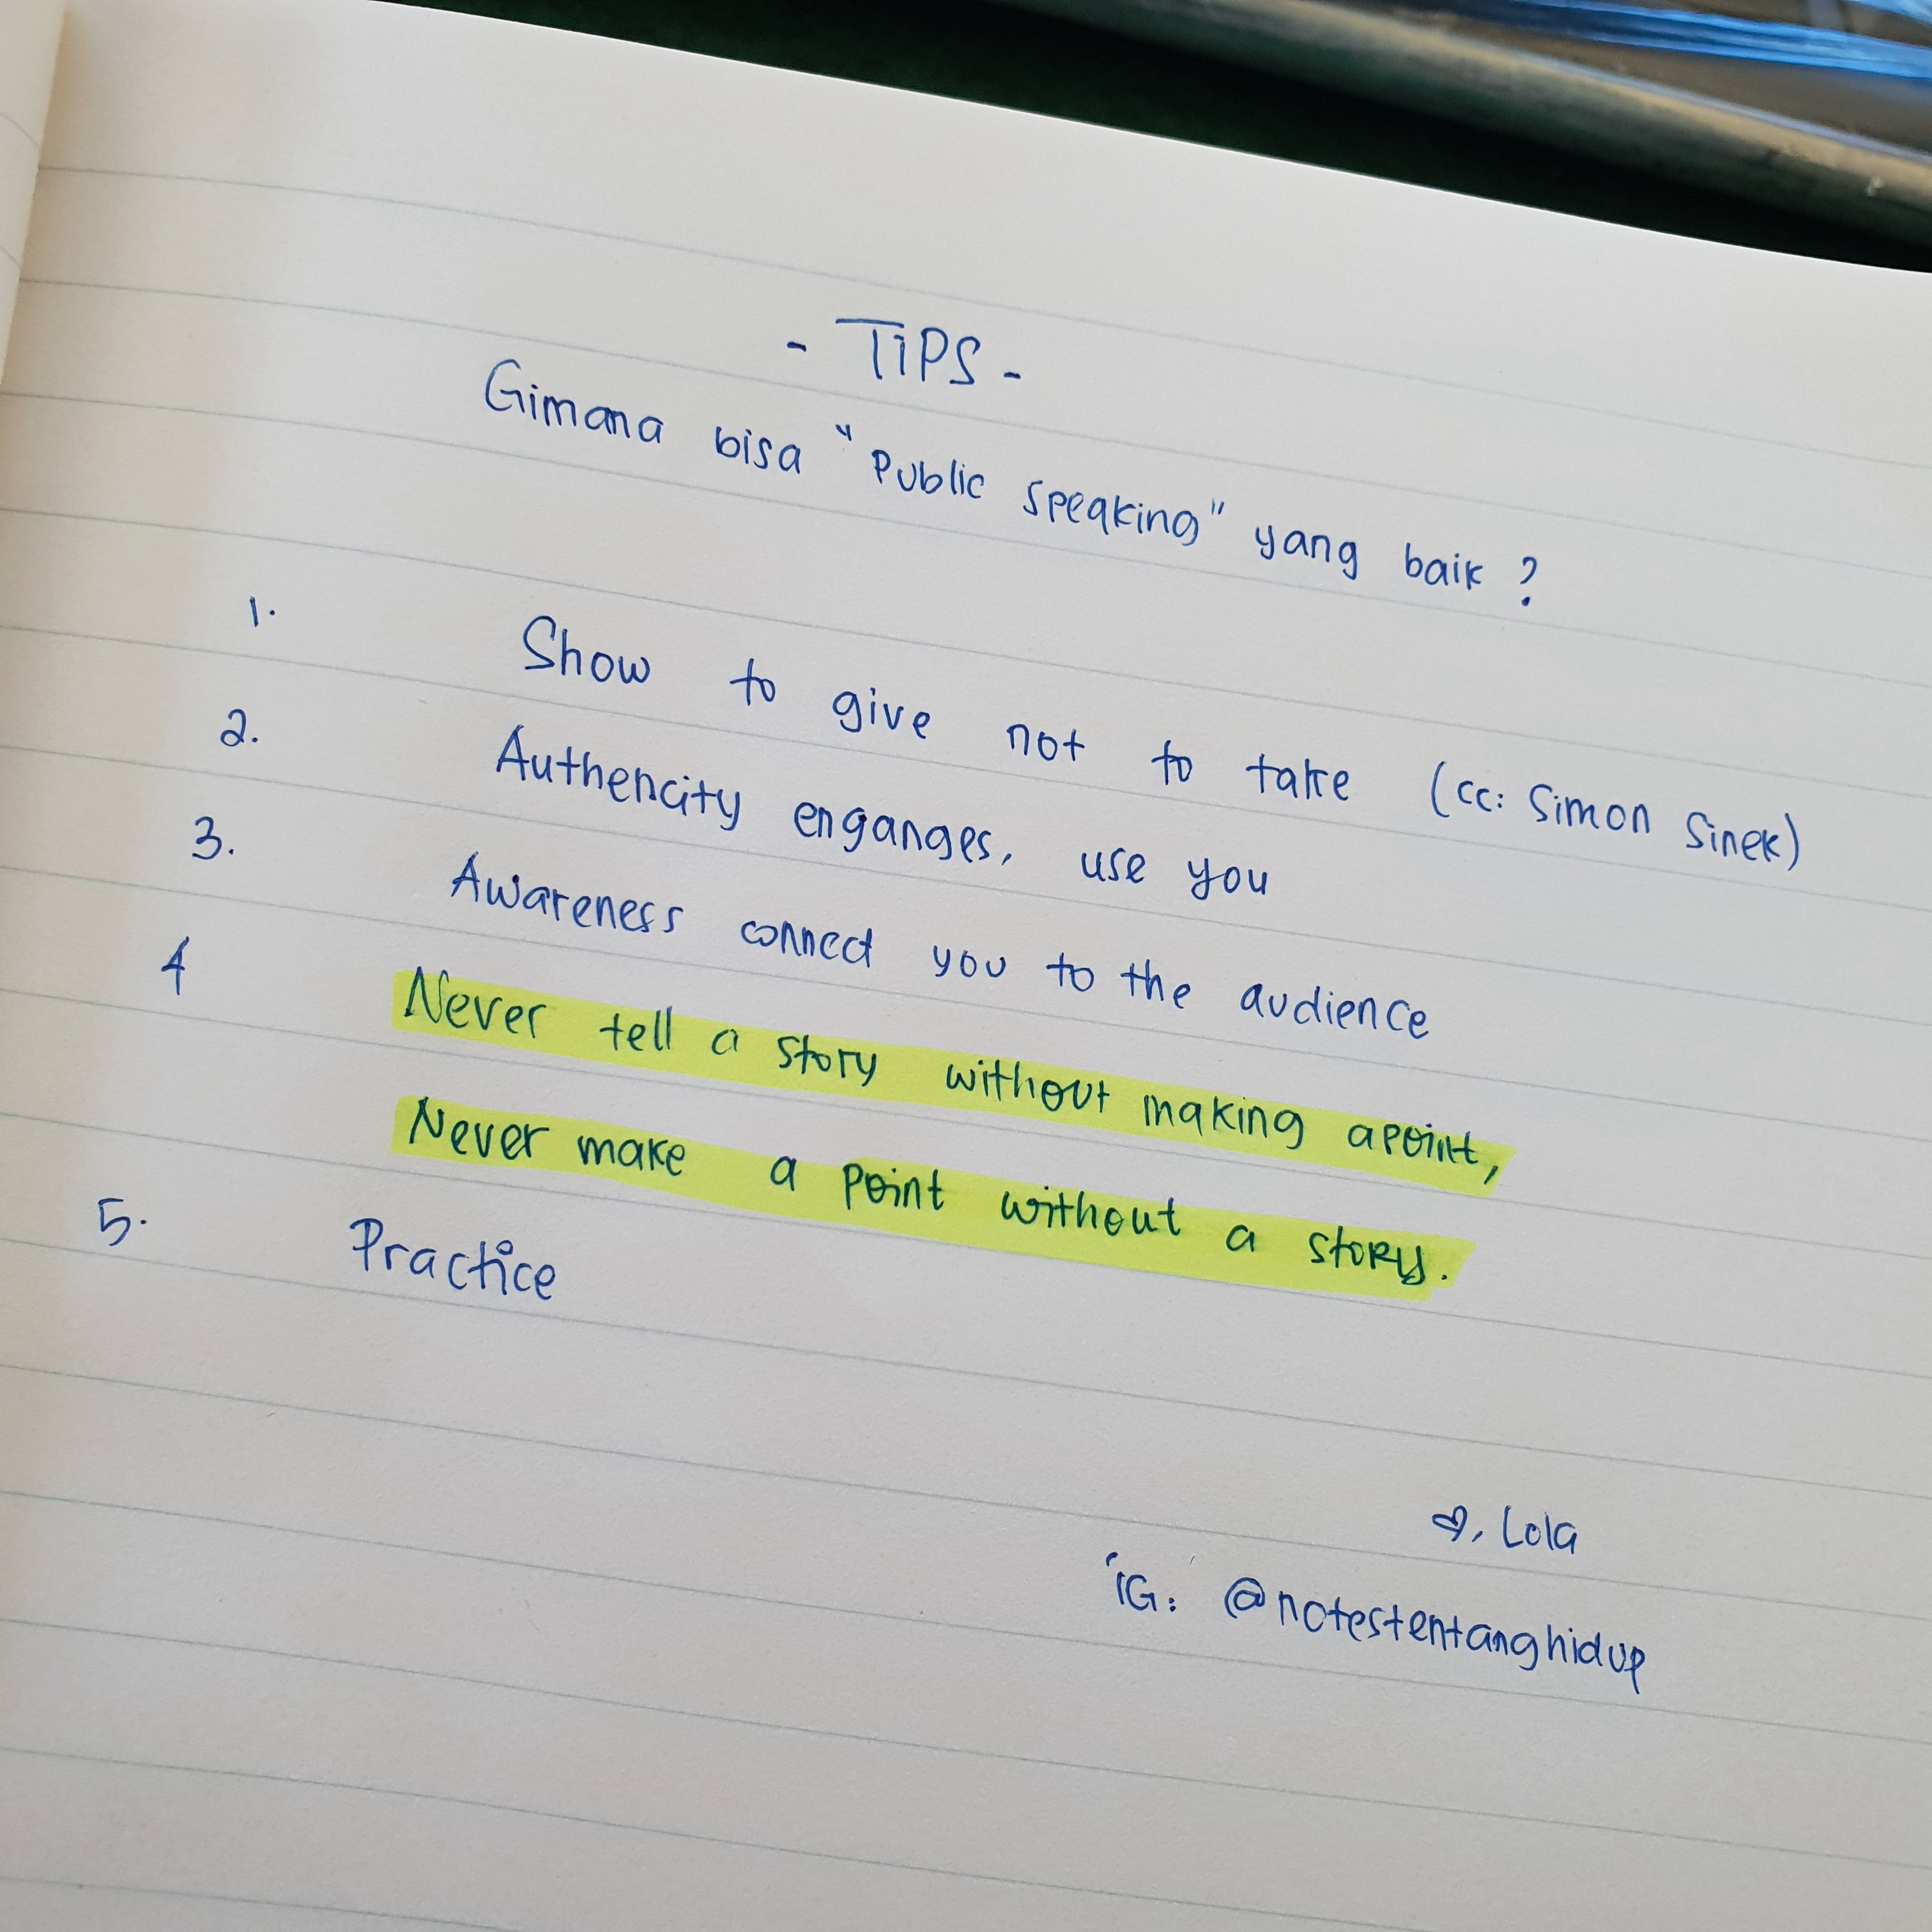 - TIPS -
Gimana bisa "Public Speaking" yang baik ?
1. Show to give not to take (cc: Simon Sinek)
2. Authencity enganges, use you
3. Awareness connect you to the audience
4 Never tell a story without making a point,
Never make a point without a story.
5. Practice
♡, Lola
IG: @notestentanghidup